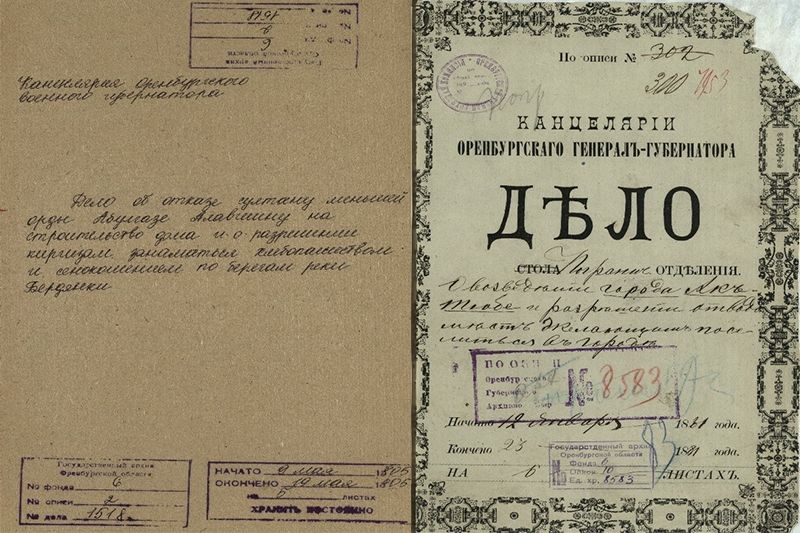 Канцелярия оренбургского
военного губернатора
Дело об отказе султану меньшей
орды Абулгазе Алавшину на
строительство дома и о разрешении
киргизам заниматься хлебопашеством
и сенокошением по берегам реки
Берденки
Государственный архив
Оренбургской области
№ фонда 6
№ описи 2
№ дела 1518
НАЧАТО 9 мая 1805
ОКОНЧЕНО 19 мая 1805
на 5 листах
ХРАНИТЬ ПОСТОЯННО
По описи № 302
300 7153
КАНЦЕЛЯРІИ
ОРЕНБУРГСКАГО ГЕНЕРАЛЪ-ГУБЕРНАТОРА
ДѢЛО
СТОЛА Погранич ОТДѢЛЕНІЯ.
О возведеніи города Акъ-
Тюбе и разрѣшеніи отвода
мѣстъ желающимъ посе-
литься въ городѣ
ПО ОПИСИ
Оренбургского
Губернск
Архивно
№ 8583
Начато 12 января 1881 года.
Кончено 23 1881 года.
НА 6 ЛИСТАХЪ.
Государственный архив
Оренбургской области
Фонд 6
Опись 10
Ед. хр. 8583